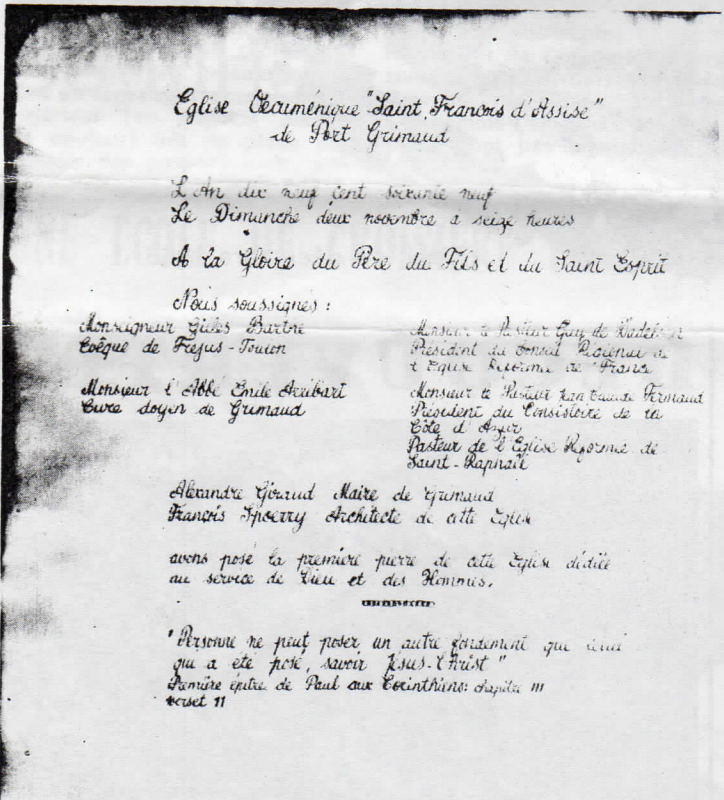 Eglise Oecuménique "Saint François d'Assise"
de Port Grimaud
L'An dix neuf cent soixante neuf
Le Dimanche deux novembre a seize heures
A la Gloire du Père du Fils et du Saint Esprit
Nous soussignés :
Monseigneur Gilles Barthe
Evêque de Frejus - Toulon
Monsieur l'Abbé Emile Arribart
Cure doyen de Grimaud
Monsieur le Pasteur Guy de
Président du Conseil Régional de
l'Eglise Réformée de France
Monsieur le Pasteur Jean Claude Fermaud
Président du Consistoire de la
Côte d'Azur
Pasteur de l'Eglise Réformée de
Saint - Raphaël
Alexandre Giraud Maire de Grimaud
François Spoerry Architecte de cette Eglise
avons posé la première pierre de cette Eglise dédiée
au service de Dieu et des Hommes.
"Personne ne peut poser un autre fondement que celui
qui a été posé, savoir Jésus-Christ"
Première épitre de Paul aux Corinthiens: chapitre III
verset 11